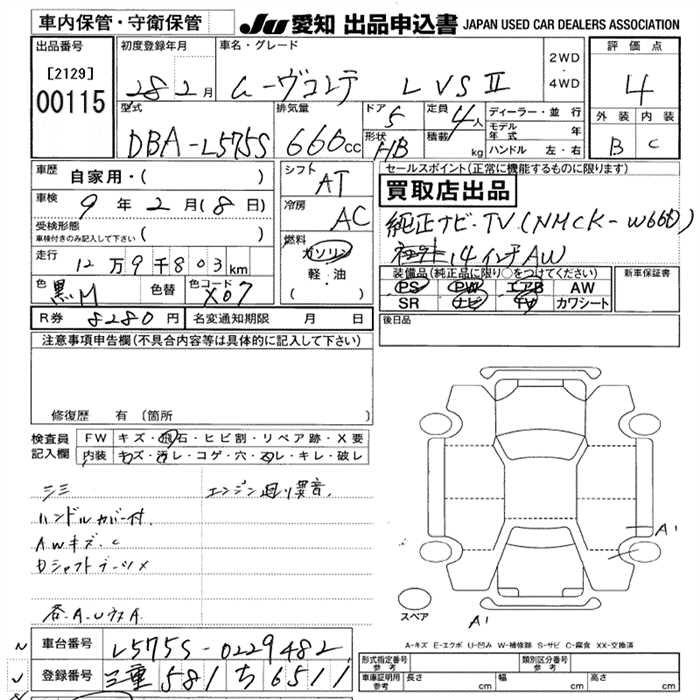 車内保管・守衛保管
JU 愛知 出品申込書 JAPAN USED CAR DEALERS ASSOCIATION
出品番号
[2129]
00115
初度登録年月
28 2月
車名・グレード
ムーヴコンテ L VS II
2WD
・
4WD
評価点
4
外装 内装
B C
型式
DBA-L575S
排気量
660cc
ドア
5
形状
HB
定員
4人
積載
kg
ディーラー・並行
モデル年式 年
ハンドル 左・右
車歴
自家用・( )
車検
9年2月(8日)
受検形態
車検付きのみ記入して下さい ( )
走行
12万9千803km
色
黒M
色替
色コード
X07
シフト
AT
冷房
AC
燃料
ガソリン
軽・油
( )
セールスポイント(正常に機能するものに限ります)
買取店出品
純正ナビ・TV(NMCK-W66D)
14インチAW
装備品(純正品に限り○をつけてください)
PS PW エアB AW
SR ナビ TV カワシート
新車保証書
R券 8280円 名変通知期限 月 日
後日品
注意事項申告欄(不具合内容等は具体的に記入して下さい)
修復歴 有(箇所
検査員
記入欄
FW キズ・飛石・ヒビ割・リペア跡・X要
内装 キズ・汚レ・コゲ・穴・スレ・キレ・破レ
シミ
エンジン廻り異音.
ハンドルカバー付.
AWキズ.C
Dシャフトブーツ×
各.A.UウスA.
A'
A'
スペア
A-キズ E-エクボ U-凹み W-補修跡 S-サビ C-腐食 XX-交換済
車台番号 L575S-0229482
登録番号 三重 581 ち 6511
形式指定番号
参考
類別区分番号
参考
車庫証明用
参考
長さ cm 幅 cm 高さ cm